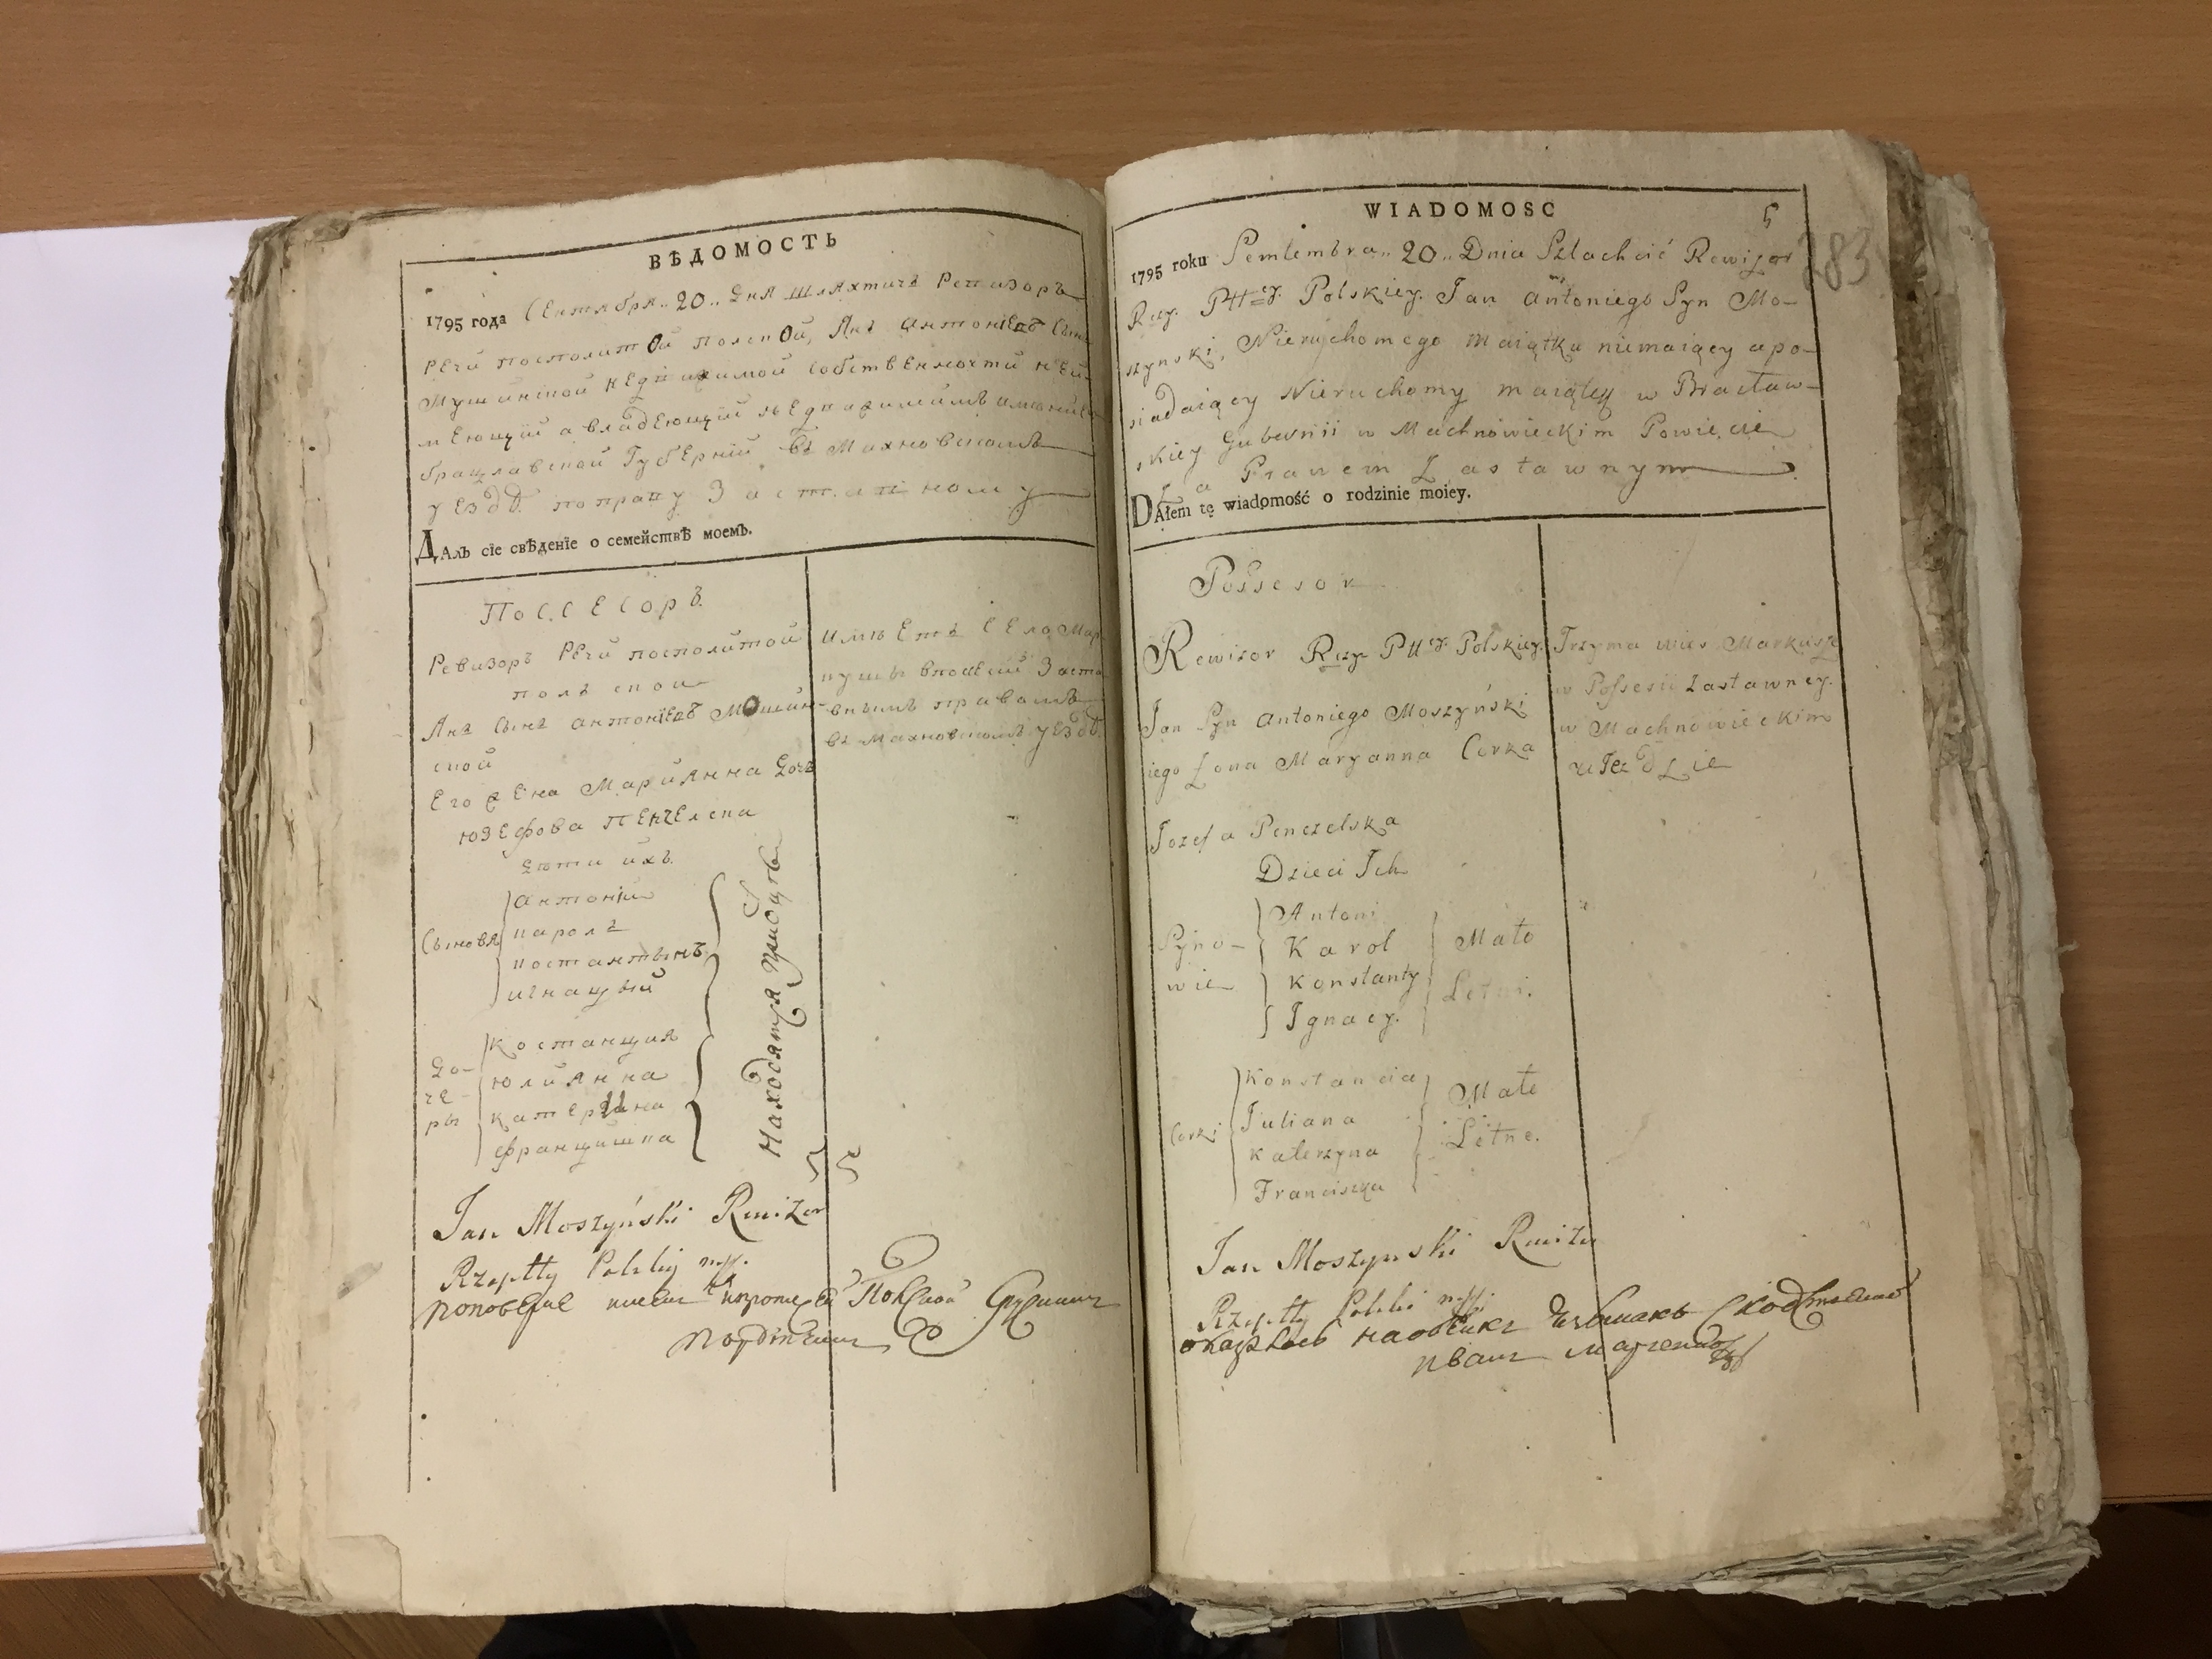 ВѢДОМОСТЬ
1795 года Сентября „ 20 „ Дня Шляхтичъ Ревизоръ
Речи посполитой полской, Янъ Антонiевъ Сынъ
собственности
а владеющiй
Брацлавской Губернiй въ Махновскомъ
уездѣ по праву Заставному
ДАлъ сїе свѣденїе о семействѣ моемъ.
Поссесоръ
Ревизоръ Речи посполитой
полской
Янъ Сынъ Антонiевъ Мошин-
ской
Его жена Марйянна Дочь
Юзефова Пенчелска
Дѣти ихъ
Сыновя
Антонiй
Кароль
Костантынъ
Игнацый
До-
че-
ры
Костанция
Юлиянна
Катерина
Францишка
Находятся при отцѣ
имѣетъ село Мар-
кушы в посесiй Заста-
внымъ правомъ
въ Махновскомъ уездѣ
Jan Moszyński Rewizor
Rzeplty Polskiy mp.
WIADOMOSC
5
283
1795 roku Semtembra „ 20 „ Dnia Szlachcić Rewizor
Rzy. Pttey. Polskiey. Jan Antoniego Syn Mo-
szynski, Nieruchomego maiątku niemaiący a po-
siadaiący Nieruchomy maiątek w Bracław-
skiey Gubernii w Machnowieckim Powiecie
Za Prawem Zastawnym
DAłem tę wiadomość o rodzinie moiey.
Possesor
Rewizor Rzy. Pttey. Polskiey.
Jan Syn Antoniego Moszyński
iego Zona Maryanna Corka
Jozefa Penczelska
Dzieci Ich
Syno-
wie
Antoni
Karol
Konstanty
Ignacy.
Mało
Letni.
Corki
Konstancia
Juliana
Katerzyna
Franciszka
Małe
Letne.
Trzyma wies Markusze
w Possesii Zastawney.
w Machnowieckim
uiezdzie
Jan Moszynski Rewizor
Rzeplty Polski mp.